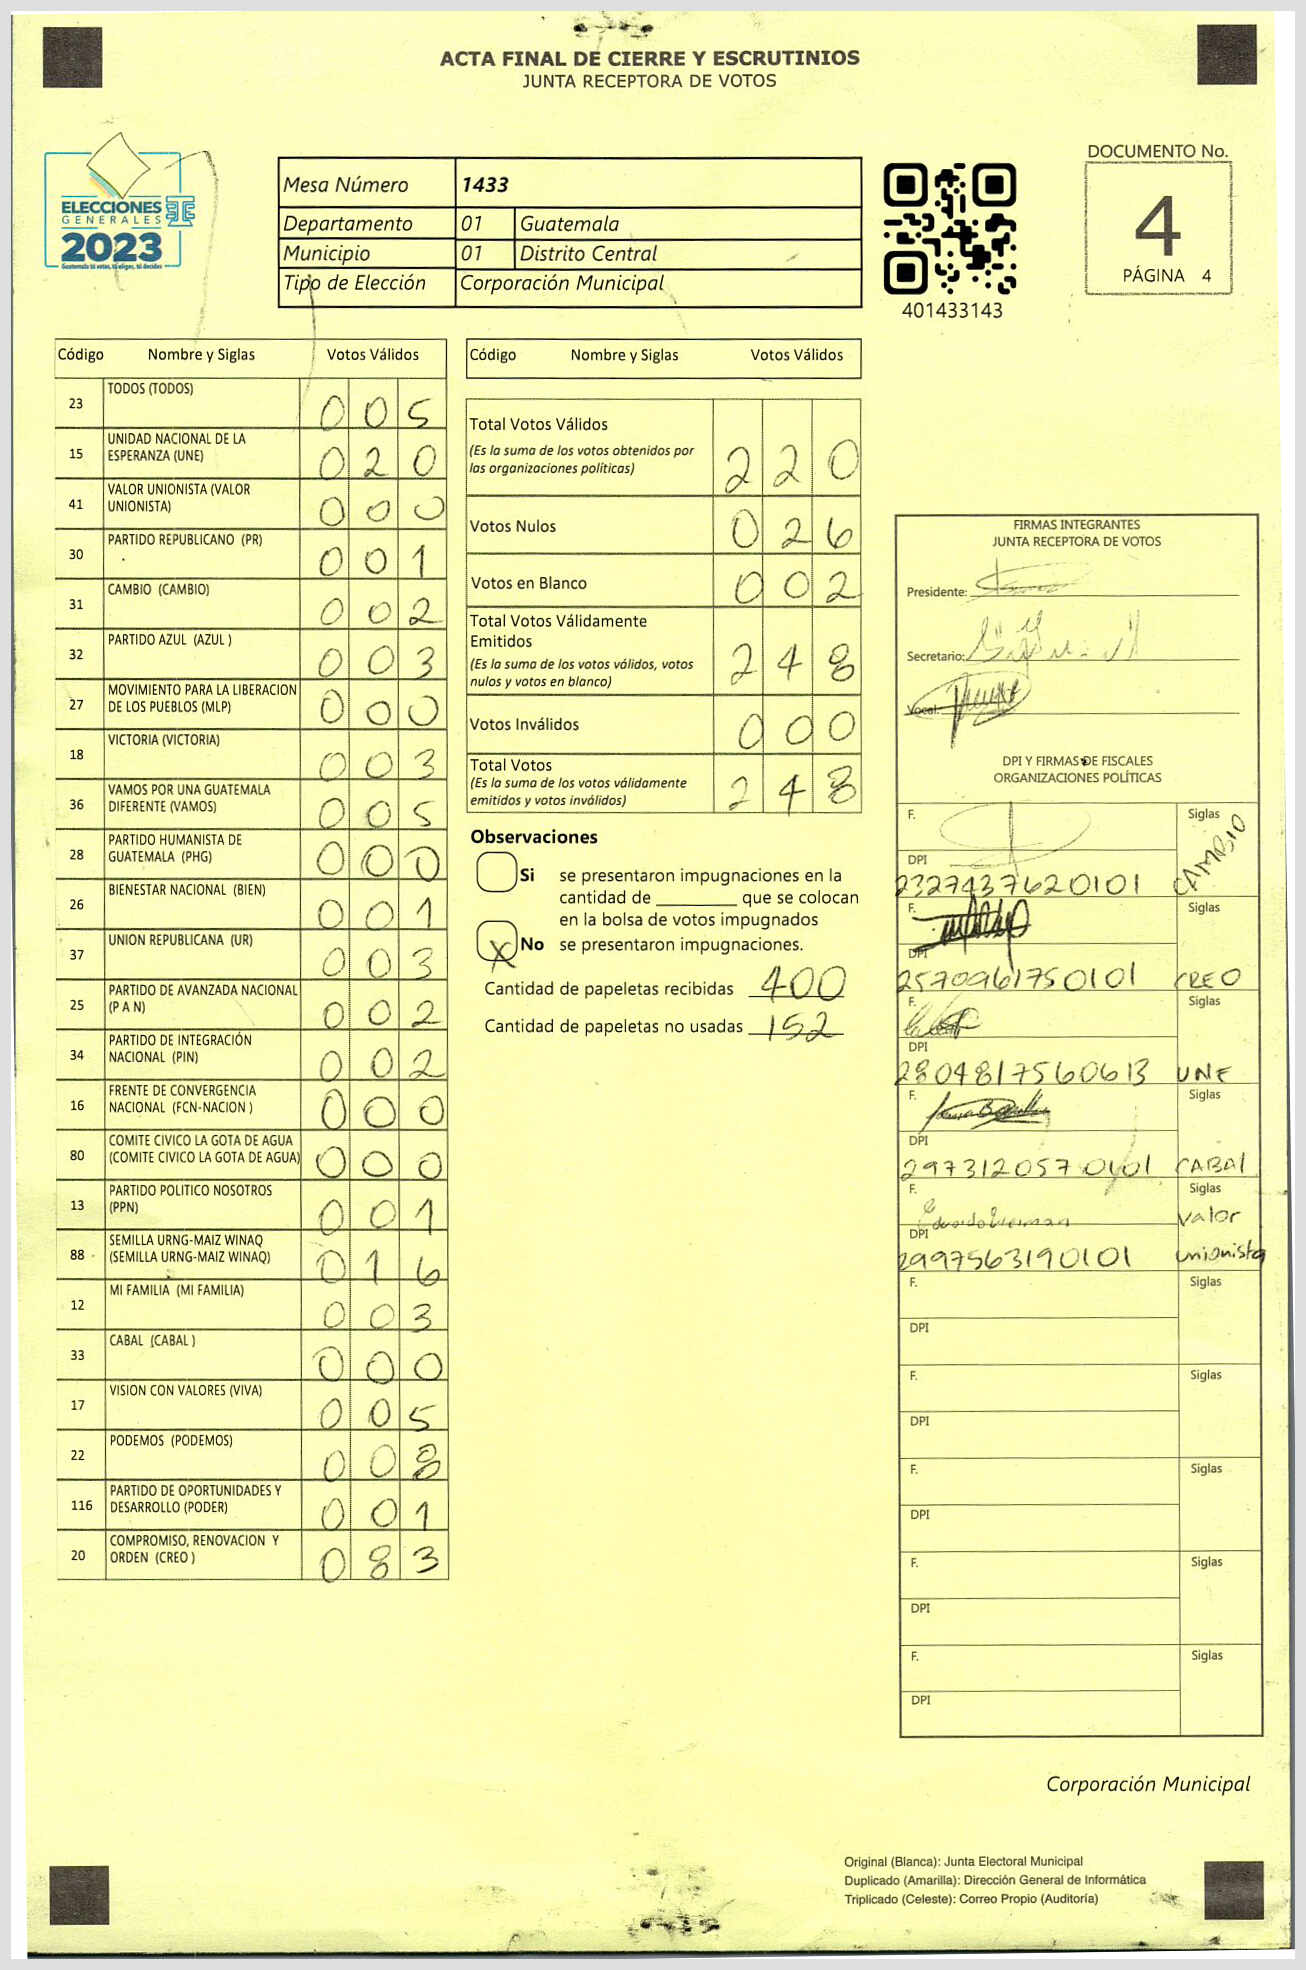 ACTA FINAL DE CIERRE Y ESCRUTINIOS
JUNTA RECEPTORA DE VOTOS
ELECCIONES
GENERALES
2023
Guatemala tú votas, tú eliges, tú decides
Mesa Número 1433
Departamento 01 Guatemala
Municipio 01 Distrito Central
Tipo de Elección Corporación Municipal
401433143
DOCUMENTO No.
4
PÁGINA 4
Código Nombre y Siglas Votos Válidos
23 TODOS (TODOS) 0 0 5
15 UNIDAD NACIONAL DE LA
ESPERANZA (UNE) 0 2 0
41 VALOR UNIONISTA (VALOR
UNIONISTA) 0 0 0
30 PARTIDO REPUBLICANO (PR) 0 0 1
31 CAMBIO (CAMBIO) 0 0 2
32 PARTIDO AZUL (AZUL ) 0 0 3
27 MOVIMIENTO PARA LA LIBERACION
DE LOS PUEBLOS (MLP) 0 0 0
18 VICTORIA (VICTORIA) 0 0 3
36 VAMOS POR UNA GUATEMALA
DIFERENTE (VAMOS) 0 0 5
28 PARTIDO HUMANISTA DE
GUATEMALA (PHG) 0 0 0
26 BIENESTAR NACIONAL (BIEN) 0 0 1
37 UNION REPUBLICANA (UR) 0 0 3
25 PARTIDO DE AVANZADA NACIONAL
(P A N) 0 0 2
34 PARTIDO DE INTEGRACIÓN
NACIONAL (PIN) 0 0 2
16 FRENTE DE CONVERGENCIA
NACIONAL (FCN-NACION ) 0 0 0
80 COMITE CIVICO LA GOTA DE AGUA
(COMITE CIVICO LA GOTA DE AGUA) 0 0 0
13 PARTIDO POLITICO NOSOTROS
(PPN) 0 0 1
88 SEMILLA URNG-MAIZ WINAQ
(SEMILLA URNG-MAIZ WINAQ) 0 1 6
12 MI FAMILIA (MI FAMILIA) 0 0 3
33 CABAL (CABAL ) 0 0 0
17 VISION CON VALORES (VIVA) 0 0 5
22 PODEMOS (PODEMOS) 0 0 8
116 PARTIDO DE OPORTUNIDADES Y
DESARROLLO (PODER) 0 0 1
20 COMPROMISO, RENOVACION Y
ORDEN (CREO ) 0 8 3
Código Nombre y Siglas Votos Válidos
Total Votos Válidos
(Es la suma de los votos obtenidos por
las organizaciones políticas) 2 2 0
Votos Nulos 0 2 6
Votos en Blanco 0 0 2
Total Votos Válidamente
Emitidos
(Es la suma de los votos válidos, votos
nulos y votos en blanco) 2 4 8
Votos Inválidos 0 0 0
Total Votos
(Es la suma de los votos válidamente
emitidos y votos inválidos) 2 4 8
Observaciones
Si se presentaron impugnaciones en la
cantidad de ________ que se colocan
en la bolsa de votos impugnados
X No se presentaron impugnaciones.
Cantidad de papeletas recibidas 400
Cantidad de papeletas no usadas 152
FIRMAS INTEGRANTES
JUNTA RECEPTORA DE VOTOS
Presidente:
Secretario:
Vocal:
DPI Y FIRMAS DE FISCALES
ORGANIZACIONES POLÍTICAS
F. Siglas
DPI
2327437620101 CAMBIO
F. Siglas
DPI
2570961750101 CREO
F. Siglas
DPI
2804817560613 UNE
F. Siglas
DPI
2973120570101 CABAL
F. Siglas
valor
DPI
2997563190101 unionista
F. Siglas
DPI
F. Siglas
DPI
F. Siglas
DPI
F. Siglas
DPI
F. Siglas
DPI
Corporación Municipal
Original (Blanca): Junta Electoral Municipal
Duplicado (Amarilla): Dirección General de Informática
Triplicado (Celeste): Correo Propio (Auditoría)